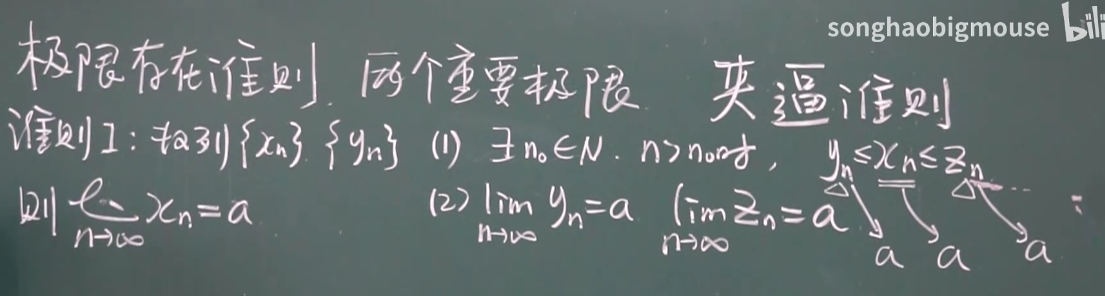 songhaobigmouse bili
极限存在准则. 两个重要极限. 夹逼准则
准则I: 数列{xn} {yn} (1) ∃n₀∈N. n>n₀时, yn≤xn≤zn
则 lim n→∞ xn=a (2) lim n→∞ yn=a lim n→∞ zn=a
a a a